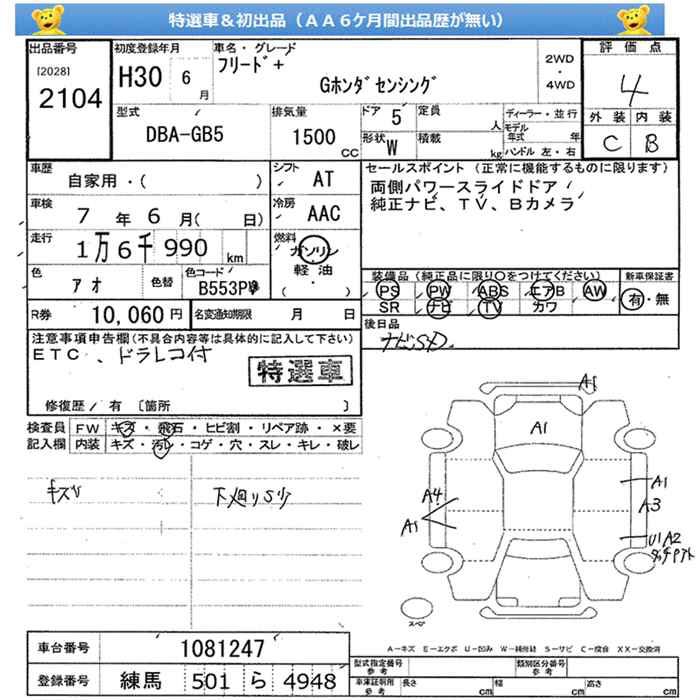 特選車&初出品（AA6ケ月間出品歴が無い）
出品番号
[2028]
2104
初度登録年月
H30 6月
車名・グレード
フリード+
Gホンダセンシング
2WD・4WD
評価点
4
外装 内装
C B
型式
DBA-GB5
排気量
1500 CC
ドア 5
形状 W
定員 人
積載 kg
ディーラー・並行
モデル年式 年
ハンドル 左・右
車歴
自家用・( )
車検
7 年 6 月( 日)
走行
1万6千990 km
色
アオ
色替
色コード
B553P
シフト
AT
冷房
AAC
燃料
ガソリン
軽油
セールスポイント（正常に機能するものに限ります）
両側パワースライドドア
純正ナビ、TV、Bカメラ
装備品（純正品に限り〇をつけてください）
PS PW ABS エアB AW
SR ナビ TV カワ
新車保証書
有・無
後日品
ナビSD
R券 10,060円
名変通知期限 月 日
注意事項申告欄(不具合内容等は具体的に記入して下さい)
ETC、ドラレコ付
特選車
修復歴/有〔箇所 〕
検査員記入欄
FW キズ・飛石・ヒビ割・リペア跡・×要
内装 キズ・汚レ・コゲ・穴・スレ・キレ・破レ
キズV
下廻りS少
A1
A1
A4
A1
A1
A3
U1A2
スペア
A-キズ E-エクボ U-凹み W-補修跡 S-サビ C-腐食 XX-交換済
車台番号 1081247
登録番号 練馬 501 ら 4948
型式指定番号 参考
類別区分番号 参考
車庫証明用 参考
長さ cm
幅 cm
高さ cm